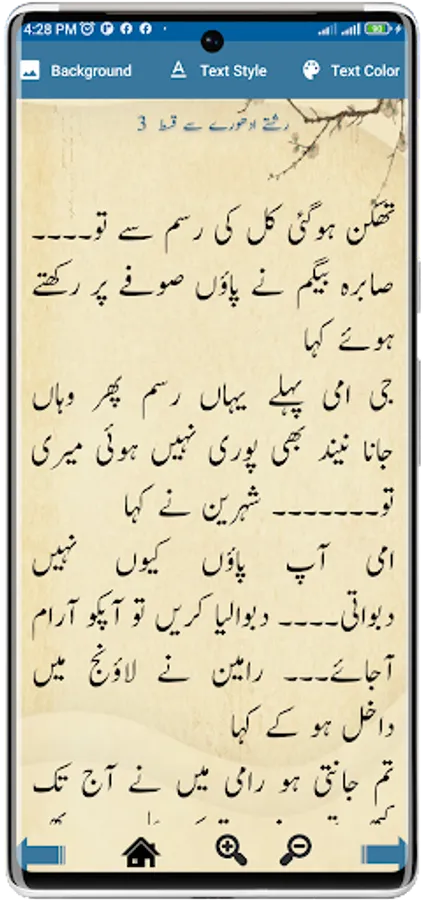 4:28 PM
Background Text Style Text Color
رشتے ادھورے سے قسط 3
تھکن ہوگئی کل کی رسم سے تو۔۔۔۔
صابرہ بیگم نے پاؤں صوفے پر رکھتے
ہوئے کہا
جی امی پہلے یہاں رسم پھر وہاں
جانا نیند بھی پوری نہیں ہوئی میری
تو۔۔۔۔۔۔۔ شہرین نے کہا
امی آپ پاؤں کیوں نہیں
دبواتی۔۔۔۔ دبوالیا کریں تو آپکو آرام
آجائے۔۔۔ رامین نے لاؤنج میں
داخل ہو کے کہا
تم جانتی ہو رامی میں نے آج تک